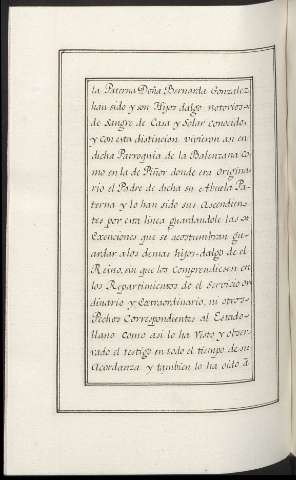 la Paterna Doña Bernarda Gonzalez
han sido y son Hijos dalgo notorios
de Sangre de Casa y Solar Conocido,
y con esta distincion vivieron asi en
dicha Parroquia de la Balenzana co
mo en la de Piñor donde era Origina
rio el Padre de dicha su Abuela Pa-
terna y lo han sido sus Ascendien-
tes por esta linea guardandole las
Exenciones que se acostumbran gu-
ardar a los demas hijos-dalgo de el
Reino, sin que los Comprendiesen en
los Repartimientos de el Servicio or
dinario y Extraordinario, ni otros
Pechos Correspondientes al Estado
llano Como asi lo ha Visto y obser-
vado el testigo en todo el tiempo de su
Acordanza y tambien lo ha oido à